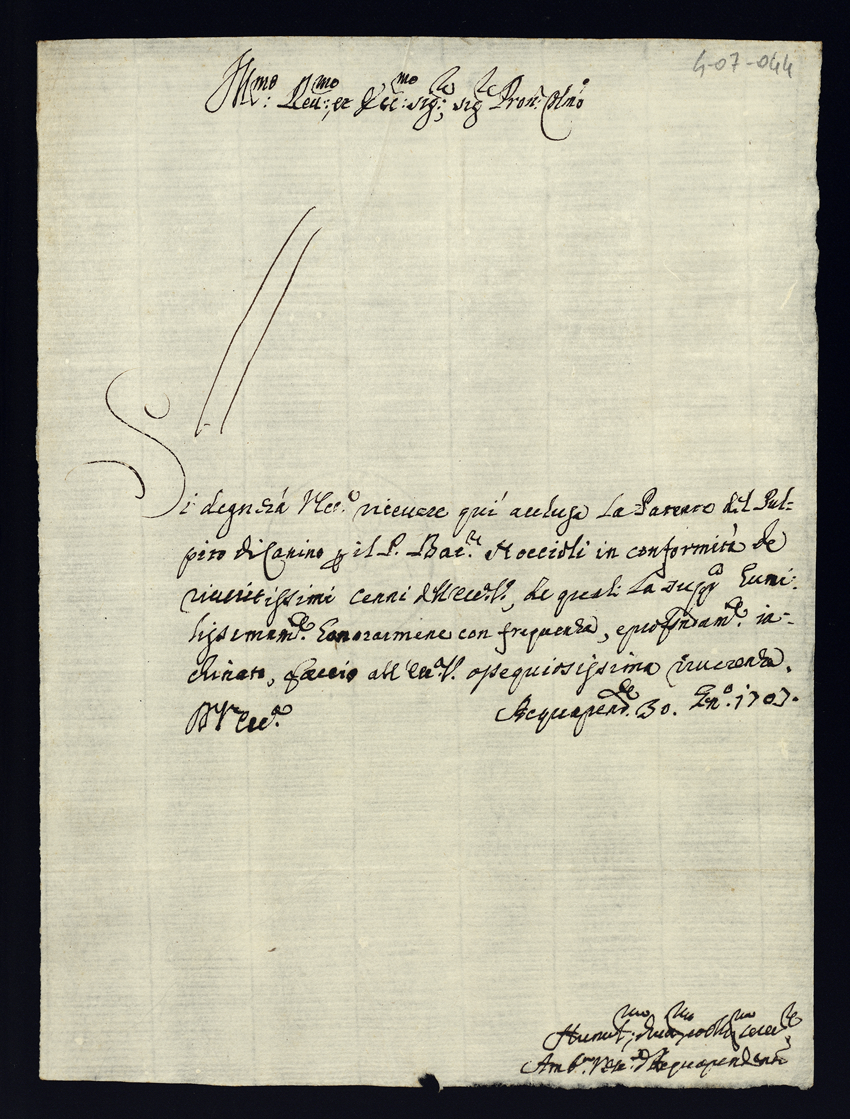 4-07-044
Ill.mo Reu.mo et Ecc.mo sig.re sig.re Pron. Col.mo
Si degnerà V Ecc.a riceuere quì acclusa la Patente del Pul=
pito di Canino p il P. Bac.re Roccioli in conformità de
riueritissimi cenni dell'Ecc.V., de quali la supp.co humi=
lissimam.te honorarmene con frequenza, e profondam.te in=
chinato, faccio all'Ecc.V. ossequiosissima riuerenza.
D V Ecc.a Acquapend.te 30. Gn.o 1707.
Humil.mo
Amb.o d'Acquapendente